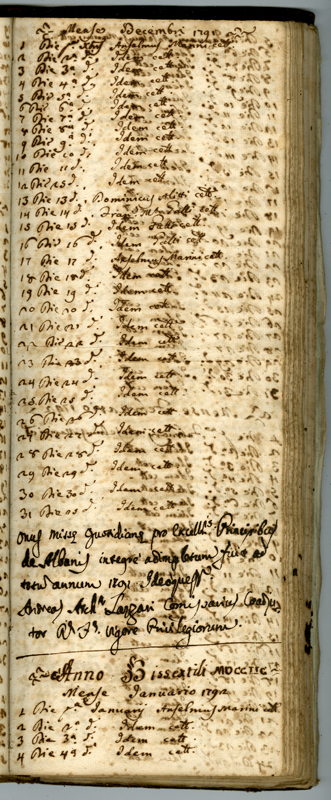 Mense Decembri 1791
1 Die pª Xbris Anselmus Manni cett
2 Die 2ª d. Idem cett
3 Die 3ª d. Idem cett
4 Die 4ª d. Idem cett
5 Die 5ª d. Idem cett
6 Die d. Idem cett
7 Die 7ª d. Idem cett
8 Die 8ª d. Idem cett
9 Die d. Idem cett
10 Die 10 d. Idem cett
11 Die 11 d. Idem cett
12 Die d. Idem cett
13 Die 13 d. Dominicus cett
14 Die 14 d. cett
15 Die 15 d. Idem cett
16 Die 16 d. Idem cett
17 Die 17 d. Anselmus Manni cett
18 Die 18 d. Idem cett
19 Die 19 d. Idem cett
20 Die 20 d. Idem cett
21 Die 21 d. Idem cett
22 Die 22 d. Idem cett
23 Die 23 d. Idem cett
24 Die 24 d. Idem cett
25 Die 25 d. Idem cett
26 Die 26 d. Idem cett
27 Die Idem cett
28 Die 28 d. Idem cett
29 Die 29 d. Idem cett
30 Die 30 d. Idem cett
31 Die d. Idem cett
Onus missę quotidianę pro Excellmis Principibus
de Albanis integre adimpletum fuit
totum annum 1791 Ideoque
Andreas Lazzari Comissarius
tor vigore Privilegiorum.
Anno Bissextili MDCCIIC
Mense Januario 1792
1 Die pª Januarij Anselmus Manni cett
2 Die 2ª d. Idem cett
3 Die 3ª d. Idem cett
4 Die 4ª d. Idem cett